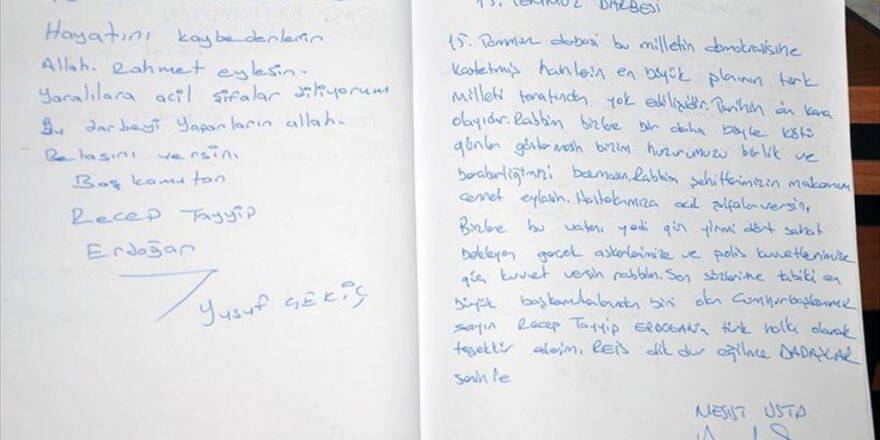 Hayatını kaybedenlerin
Allah. Rahmet eylesin.
Yaralılara acil şifalar diliyorum
Bu darbeyi Yapanların allah.
Belasını versin.
Baş komutan
Recep Tayyip
Erdoğan
Yusuf GEKİÇ
15. TEMMUZ DARBESİ
15. Temmuz darbesi bu milletin demokrasisine
kastetmiş hainlerin en büyük planının türk
milleti tarafından yok edilişidir. Tarihin en kara
olayıdır. Rabbim bizlere bir daha böyle kötü
günler göstermesin bizim huzurumuzu birlik ve
beraberliğimizi bozmasın. Rabbim şehitlerimizin makamını
cennet eylesin. Hastalarımıza acil şifalar versin.
Bizlere bu vatanı yedi gün yirmi dört saat
bekleyen gerçek askerlerimize ve polis kuvvetlerimize
güç kuvvet versin rabbim. Son sözlerime tabiki en
büyük başkomutanlarından biri olan Cumhurbaşkanımız
sayın Recep Tayyip ERDOĞAN'a türk halkı olarak
teşekkür ederim. REİS dik dur eğilme DADAŞLAR
senin le
USTA